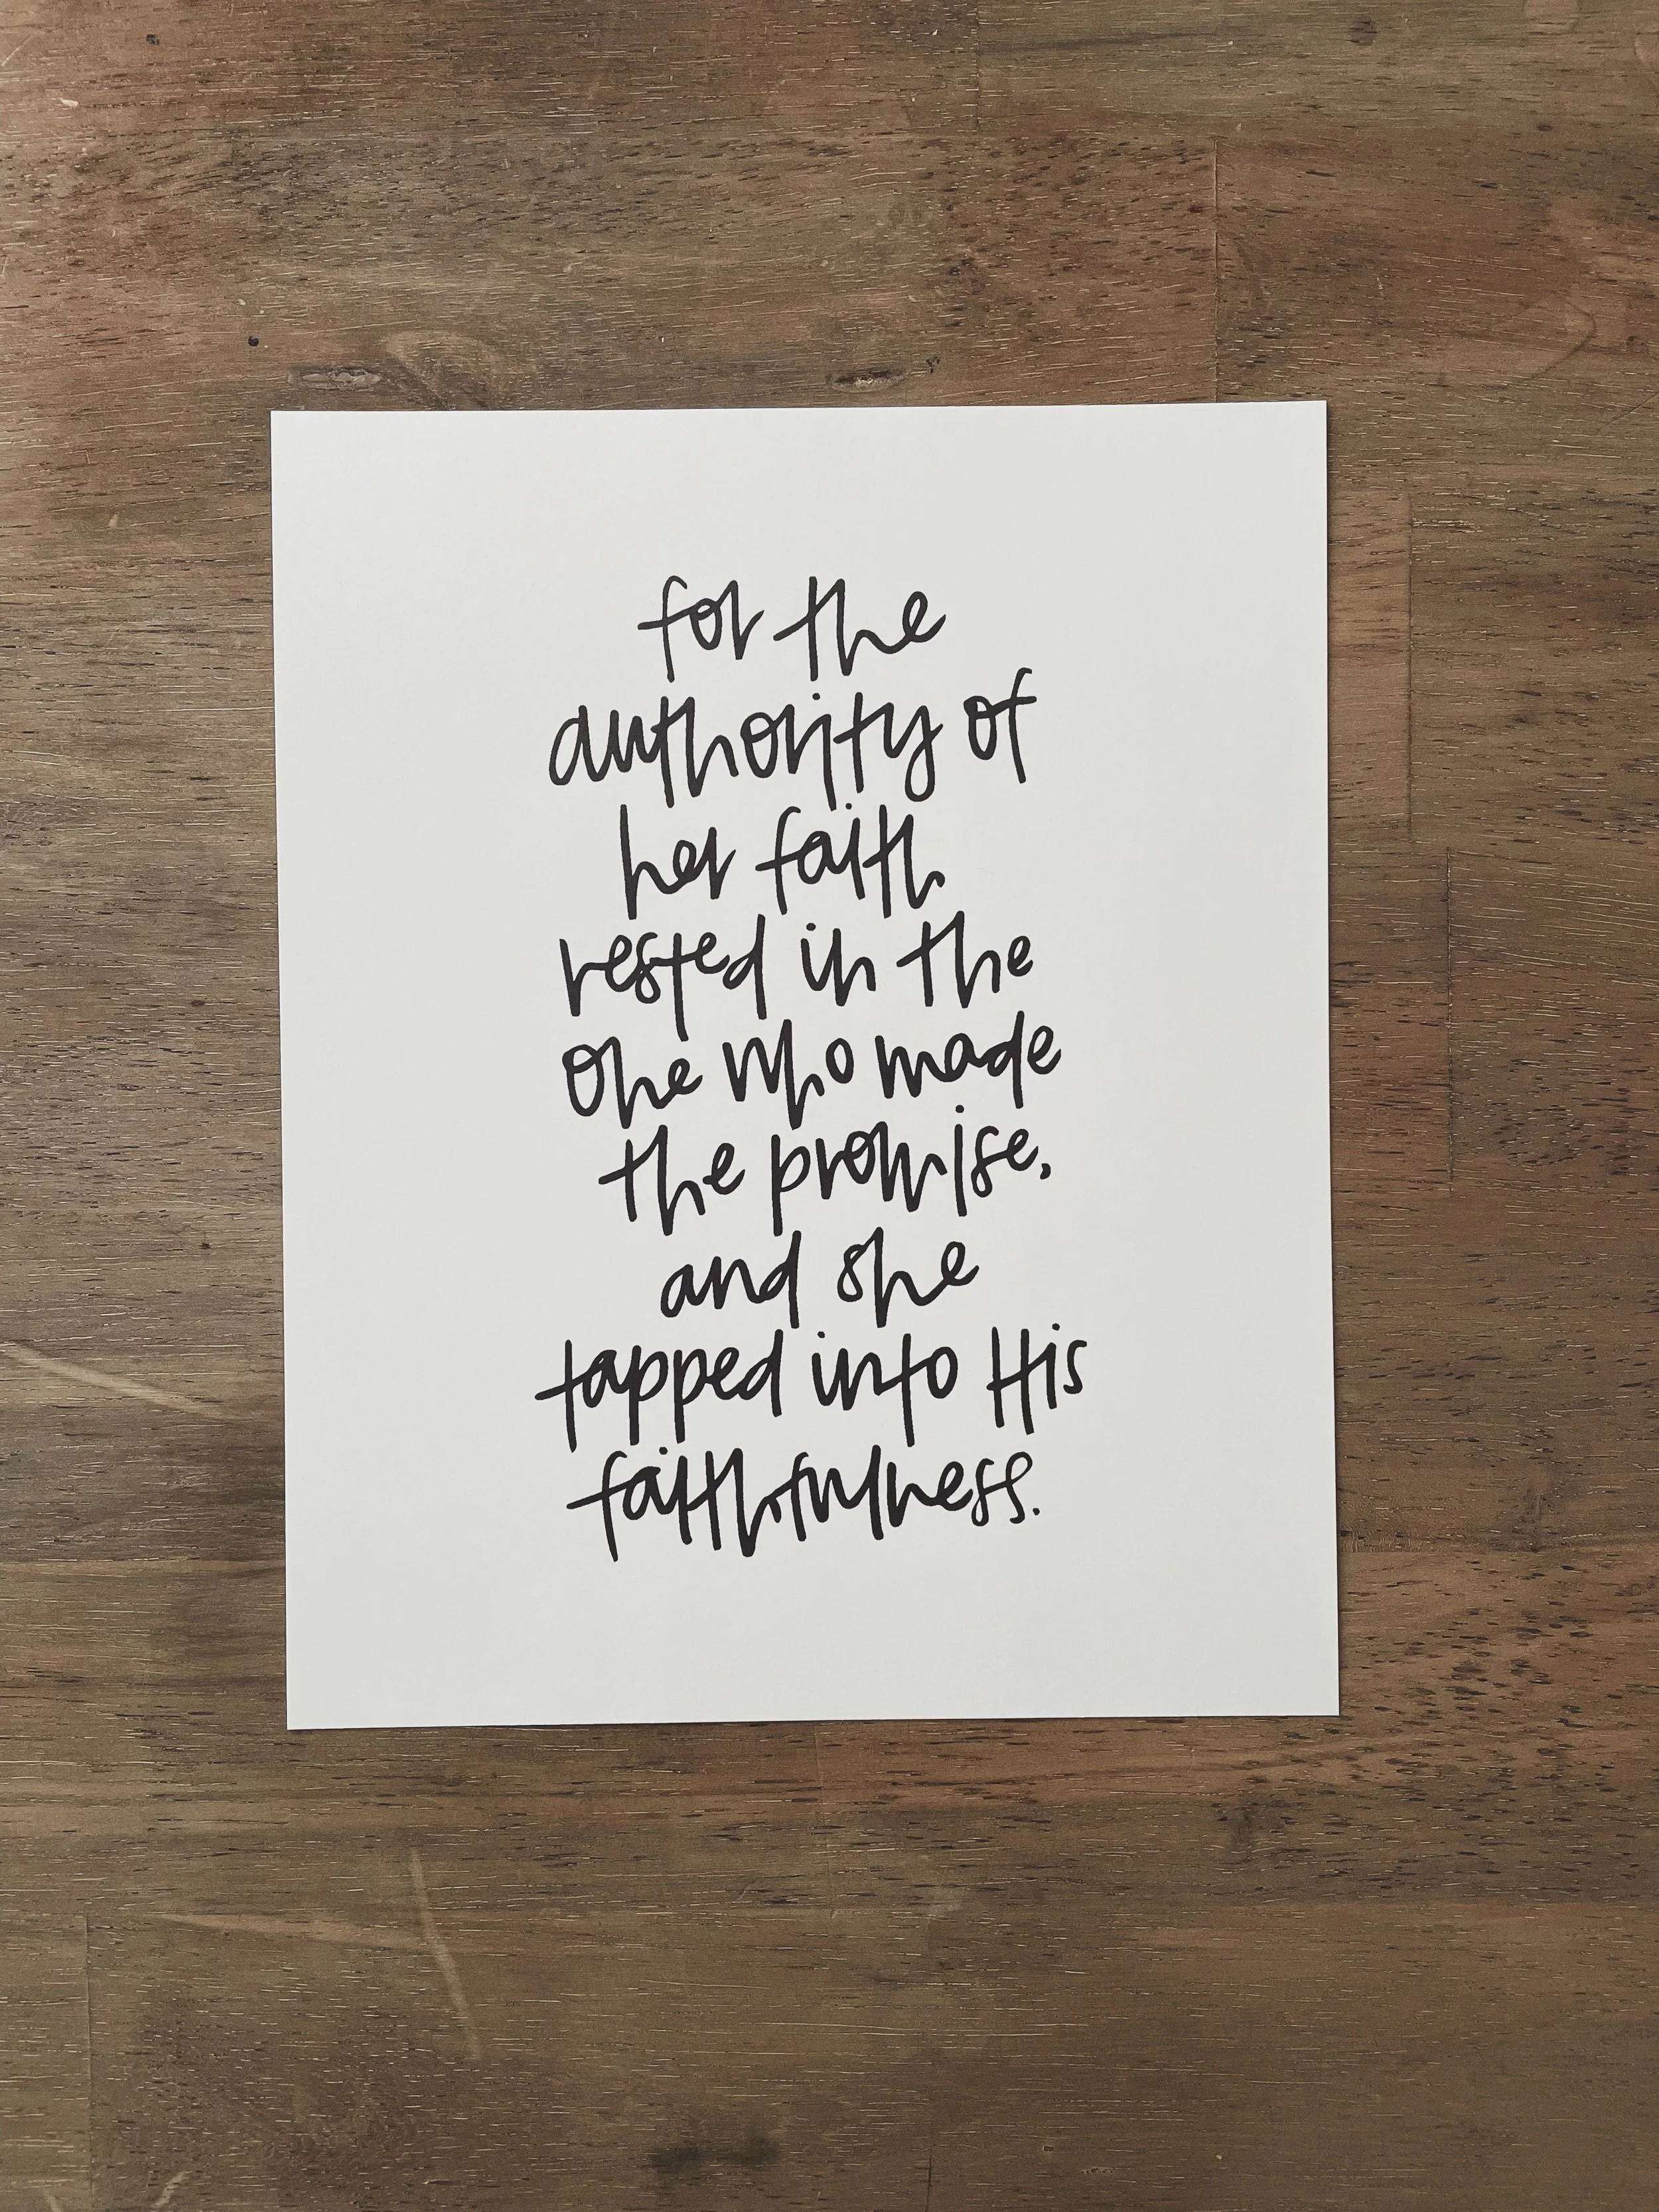 for the
authority of
her faith
rested in the
One who made
the promise,
and she
tapped into His
faithfulness.